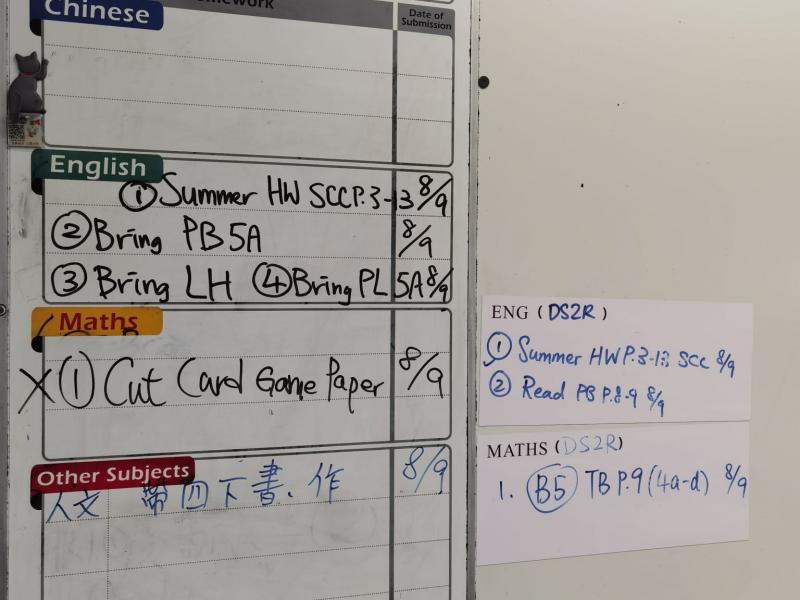 Chinese
Date of
Submission
English
① Summer HW SCC P.3-13 8/9
② Bring PB 5A 8/9
③ Bring LH ④ Bring PL 5A 8/9
Maths
X ① Cut Card Game Paper 8/9
Other Subjects
人文 帶四下書.作 8/9
ENG (DS2R)
① Summer HW P.3-13 SCC 8/9
② Read PB P.8-9 8/9
MATHS (DS2R)
1. B5 TB P.9 (4a-d) 8/9